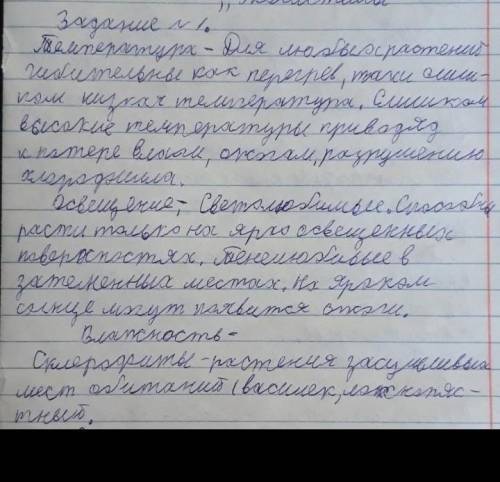 Задание №1.
Температура - Для любых растений
губительны как перегрев, так и слиш-
ком низкая температура. Слишком
высокие температуры приводяд
к потере влаги, ожогам, разрушению
хлорофилла.
Освещение, - Светолюбивые. Способны
расти только на ярко освещенных
поверхностях. Тенелюбивые в
затемненных местах. На ярком
солнце могут появится ожоги.
Влажность -
Склерофиты - растения засушливых
мест обитаний (василек,
тный.